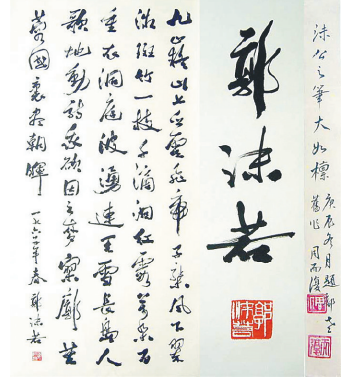 沫公之筆大如椽
庚辰冬月題郭老
舊作 周而復
郭沫若
九嶷山上白雲飛帝子乘風下翠
微斑竹一枝千滴淚紅霞萬朵百
重衣洞庭波湧連天雪長島人
歌地動詩我欲因之夢寥廓芙
蓉國裏盡朝暉
一九六年春 郭沫若